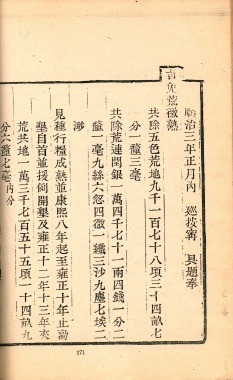 順治三年正月內　巡按甯　具題奉
旨免荒徵熟
共除五色荒地九千一百七十八項三十四畝七
分一釐三毫
共除荒連閏銀一萬四千七十一兩四錢一分二
釐一毫九絲六忽四微一纖三沙九塵七埃二
渺
見種行糧成熟並康熙八年起至雍正十年止勸
墾自首並援例開墾及雍正十二年十三年夾
荒共地一萬三千七百五十五頃一十四畝九
分六釐七毫內分
271